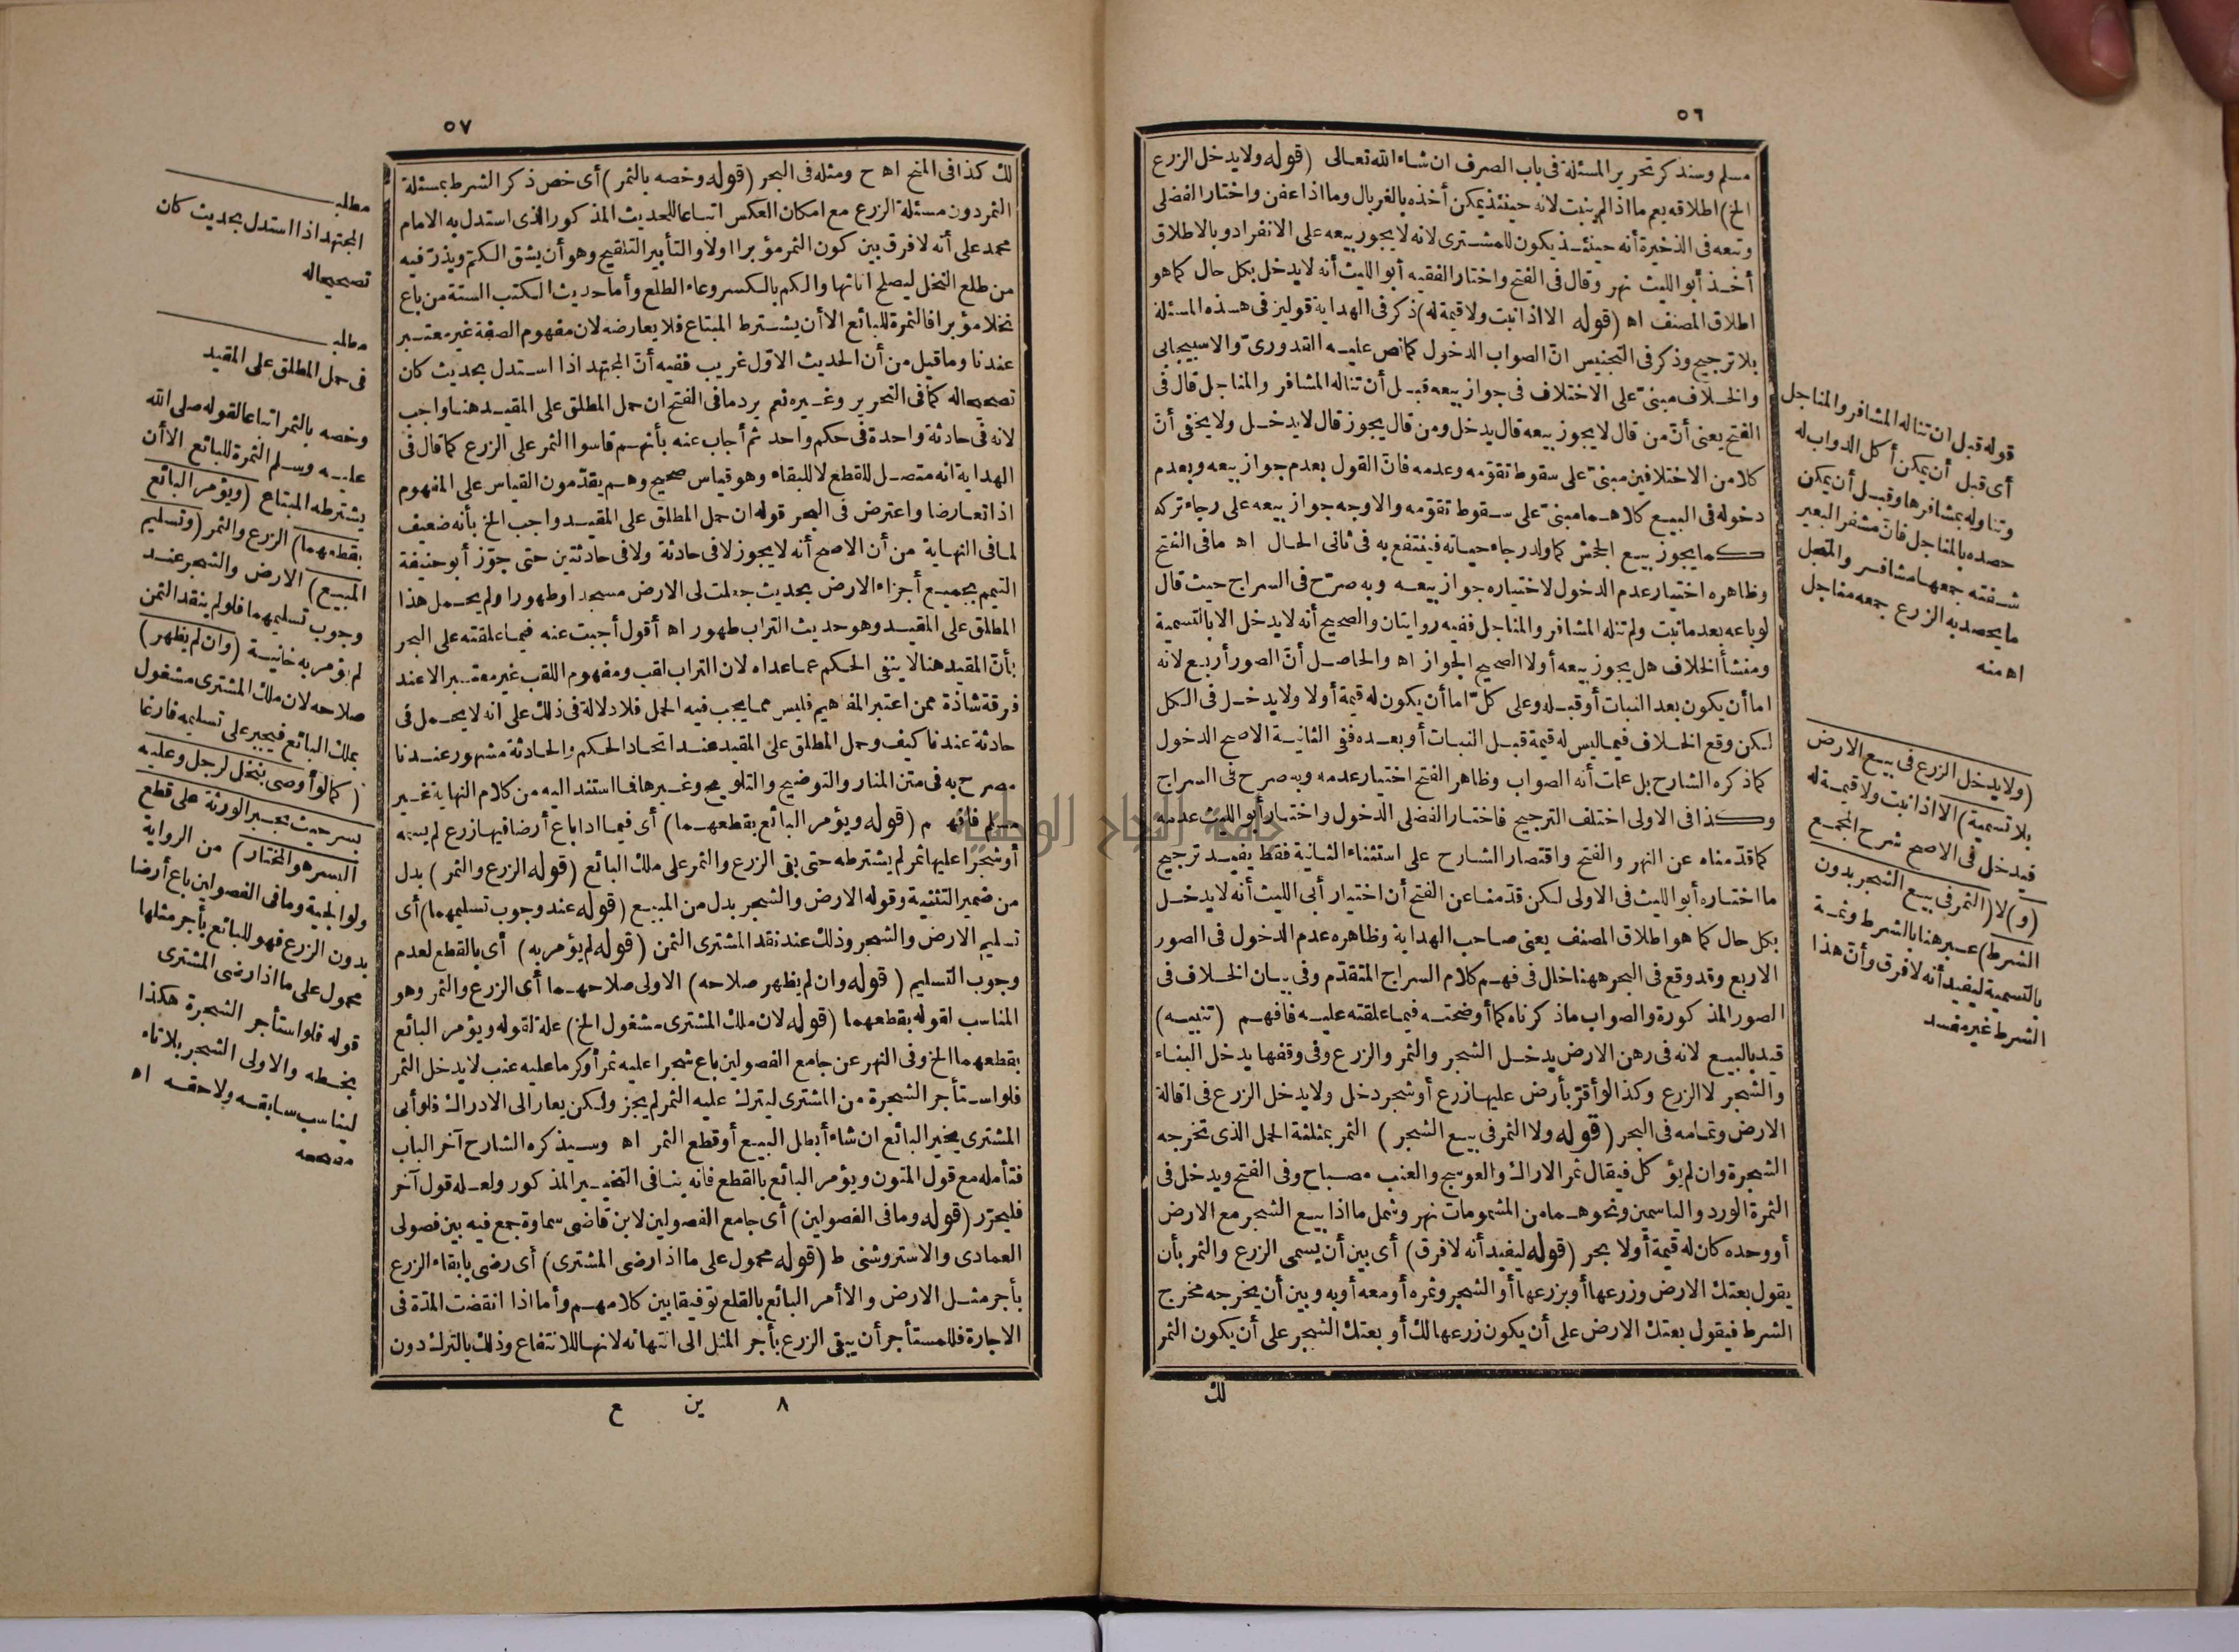 ٥٦
مسلم وسنذكر تحرير المسئلة فى باب الصرف ان شاء الله تعالى (قوله ولا يدخل الزرع
الخ) اطلاقه يعم ما اذا لم ينبت لانه حينئذ يمكن أخذه بالغربال وما اذا عفن واختار الفضلى
وتبعه فى الذخيرة أنه حينئذ يكون للمشترى لانه لا يجوز بيعه على الانفراد وبالاطلاق
أخذ أبو الليث نهر وقال فى الفتح واختار الفقيه أبو الليث أنه لا يدخل بكل حال كما هو
اطلاق المصنف اه (قوله الا اذا نبت ولا قيمة له) ذكر فى الهداية قولين فى هذه المسئلة
بلا ترجيح وذكر فى التجنيس انّ الصواب الدخول كما نص عليه القدورىّ والاسبيجابى
والخلاف مبنىّ على الاختلاف فى جواز بيعه قبل أن تناله المشافر والمناجل قال فى
الفتح يعنى أنّ من قال لا يجوز بيعه قال يدخل ومن قال يجوز قال لا يدخل ولا يخفى أنّ
كلا من الاختلافين مبنىّ على سقوط تقوّمه وعدمه فانّ القول بعدم جواز بيعه وبعدم
دخوله فى البيع كلاهما مبنىّ على سقوط تقوّمه والاوجه جواز بيعه على رجاء تركه
كما يجوز بيع الجحش كما ولد رجاء حياته فينتفع به فى ثانى الحال اه ما فى الفتح
وظاهره اختيار عدم الدخول لاختياره جواز بيعه وبه صرّح فى السراج حيث قال
لو باعه بعد ما نبت ولم تنله المشافر والمناجل ففيه روايتان والصحيح أنه لا يدخل الا بالتسمية
ومنشأ الخلاف هل يجوز بيعه أولا الصحيح الجواز اه والحاصل أنّ الصور أربع لانه
اما أن يكون بعد النبات أو قبله وعلى كلّ اما أن يكون له قيمة أولا ولا يدخل فى الكل
لكن وقع الخلاف فيما ليس له قيمة قبل النبات أو بعده ففى الثانية الاصح الدخول
كما ذكره الشارح بل علمت أنه الصواب وظاهر الفتح اختيار عدمه وبه صرح فى السراج
وكذا فى الاولى اختلف الترجيح فاختار الفضلى الدخول واختار أبو الليث عدمه
كما قدّمناه عن النهر والفتح واقتصار الشارح على استثناء الثانية فقط يفيد ترجيح
ما اختاره أبو الليث فى الاولى لكن قدّمنا عن الفتح أن اختيار أبى الليث أنه لا يدخل
بكل حال كما هو اطلاق المصنف يعنى صاحب الهداية وظاهره عدم الدخول فى الصور
الاربع وقد وقع فى البحر ههنا خلل فى فهم كلام السراج المتقدّم وفى بيان الخلاف فى
الصور المذكورة والصواب ما ذكرناه كما أوضحته فيما علقته عليه فافهم (تنبيه)
قيد بالبيع لانه فى رهن الارض يدخل الشجر والثمر والزرع وفى وقفها يدخل البناء
والشجر لا الزرع وكذا لو أقرّ بأرض عليها زرع أو شجر دخل ولا يدخل الزرع فى اقالة
الارض وتمامه فى البحر (قوله ولا الثمر فى بيع الشجر) الثمر بمثلثة الحمل الذى تخرجه
الشجرة وان لم يؤكل فيقال ثمر الاراك والعوسج والعنب مصباح وفى الفتح ويدخل فى
الثمرة الورد والياسمين ونحوهما من المشمومات نهر وشمل ما اذا بيع الشجر مع الارض
أو وحده كان له قيمة أولا بحر (قوله ليفيد أنه لا فرق) أى بين أن يسمى الزرع والثمر بأن
يقول بعتك الارض وزرعها أو بزرعها أو الشجر وثمره أو معه أو به وبين أن يخرجه مخرج
الشرط فيقول بعتك الارض على أن يكون زرعها لك أو بعتك الشجر على أن يكون الثمر
لك
قوله قبل ان تناله المشافر والمناجل
أى قبل أن يمكن أكل الدواب له
وتناوله بمشافرها وقبل أن يمكن
حصده بالمناجل فانّ مشفر البعير
شفته جمعها مشافر والمنجل
ما يحصد به الزرع جمعه مناجل
اه منه
(ولا يدخل الزرع فى بيع الارض
بلا تسمية) الا اذا نبت ولا قيمة له
فيدخل فى الاصح شرح المجمع
(و) لا (الثمر فى بيع الشجر بدون
الشرط) عبر هنا بالشرط وثمة
بالتسمية ليفيد أنه لا فرق وأنّ هذا
الشرط غير مفسد
٥٧
لك كذا فى المنح اه ح ومثله فى البحر (قوله وخصه بالثمر) أى خص ذكر الشرط بمسئلة
الثمر دون مسئلة الزرع مع امكان العكس اتباعا للحديث المذكور الذى استدل به الامام
محمد على أنه لا فرق بين كون الثمر مؤبرا اولا والتأبير التلقيح وهو أن يشق الكم ويذرّ فيه
من طلع النخل ليصلح اناثها والكم بالكسر وعاء الطلع وأما حديث الكتب الستة من باع
نخلا مؤبرا فالثمرة للبائع الا أن يشترط المبتاع فلا يعارضه لان مفهوم الصفة غير معتبر
عندنا وما قيل من أن الحديث الاوّل غريب ففيه أنّ المجتهد اذا استدل بحديث كان
تصحيحا له كما فى التحرير وغيره نعم يرد ما فى الفتح ان حمل المطلق على المقيد هنا واجب
لانه فى حادثة واحدة فى حكم واحد ثم أجاب عنه بأنهم قاسوا الثمر على الزرع كما قال فى
الهداية انه متصل للقطع لا للبقاء وهو قياس صحيح وهم يقدّمون القياس على المفهوم
اذا تعارضا واعترض فى البحر قوله ان حمل المطلق على المقيد واجب الخ بأنه ضعيف
لما فى النهاية من أن الاصح أنه لا يجوز لا فى حادثة ولا فى حادثتين حتى جوّز أبو حنيفة
التيمم بجميع أجزاء الارض بحديث جعلت لى الارض مسجدا وطهورا ولم يحمل هذا
المطلق على المقيد وهو حديث التراب طهور اه أقول أجبت عنه فيما علقته على البحر
بأنّ المقيد هنا لا ينفى الحكم عما عداه لان التراب لقب ومفهوم اللقب غير معتبر الا عند
فرقة شاذة ممن اعتبر المفاهيم فليس مما يجب فيه الحمل فلا دلالة فى ذلك على انه لا يحمل فى
حادثة عندنا كيف وحمل المطلق على المقيد عند اتحاد الحكم والحادثة مشهور عندنا
مصرح به فى متن المنار والتوضيح والتلويح وغيرها فما استند اليه من كلام النهاية غير
مسلم فافهم (قوله ويؤمر البائع بقطعهما) أى فيما اذا باع أرضا فيها زرع لم يسمه
أو شجرا عليها ثمر لم يشترطه حتى بقى الزرع والثمر على ملك البائع (قوله الزرع والثمر) بدل
من ضمير التثنية وقوله الارض والشجر بدل من المبيع (قوله عند وجوب تسليمهما) أى
تسليم الارض والشجر وذلك عند نقد المشترى الثمن (قوله لم يؤمر به) أى بالقطع لعدم
وجوب التسليم (قوله وان لم يظهر صلاحه) الاولى صلاحهما أى الزرع والثمر وهو
المناسب لقوله بقطعهما (قوله لان ملك المشترى مشغول الخ) علة لقوله ويؤمر البائع
بقطعهما الخ وفى النهر عن جامع الفصولين باع شجرا عليه ثمر أو كرما عليه عنب لا يدخل الثمر
فلو استأجر الشجرة من المشترى ليترك عليه الثمر لم يجز ولكن يعار الى الادراك فلو أبى
المشترى يخير البائع ان شاء أبطل البيع أو قطع الثمر اه وسيذكره الشارح آخر الباب
فتأمله مع قول المتون ويؤمر البائع بالقطع فانه ينافى التخيير المذكور ولعله قول آخر
فليحرّر (قوله وما فى الفصولين) أى جامع الفصولين لابن قاضى سماوة جمع فيه بين فصولى
العمادى والاستروشنى ط (قوله محمول على ما اذا رضى المشترى) أى رضى بابقاء الزرع
بأجر مثل الارض والا أمر البائع بالقلع توفيقا بين كلامهم وأما اذا انقضت المدّة فى
الاجارة فللمستأجر أن يبقى الزرع بأجر المثل الى انتهائه لانها للانتفاع وذلك بالترك دون
٨ ين ع
مطلب
المجتهد اذا استدل بحديث كان
تصحيحا له
مطلب
فى حمل المطلق على المقيد
وخصه بالثمر اتباعا لقوله صلى الله
عليه وسلم الثمرة للبائع الا أن
يشترطه المبتاع (ويؤمر البائع
بقطعهما) الزرع والثمر (وتسليم
المبيع) الارض والشجر عند
وجوب تسليمهما فلو لم ينقد الثمن
لم يؤمر به خانية (وان لم يظهر)
صلاحه لان ملك المشترى مشغول
بملك البائع فيجبر على تسليمه فارغا
(كما لو أوصى بنخل لرجل وعليه
بسر حيث يجبر الورثة على قطع
البسر هو المختار) من الرواية
ولوالجية وما فى الفصولين باع أرضا
بدون الزرع فهو للبائع بأجر مثلها
محمول على ما اذا رضى المشترى
قوله فلو استأجر الشجرة هكذا
بخطه والاولى الشجر بلا تاء
ليناسب سابقه ولاحقه اه
مصححه
جامعة النجاح الوطنية